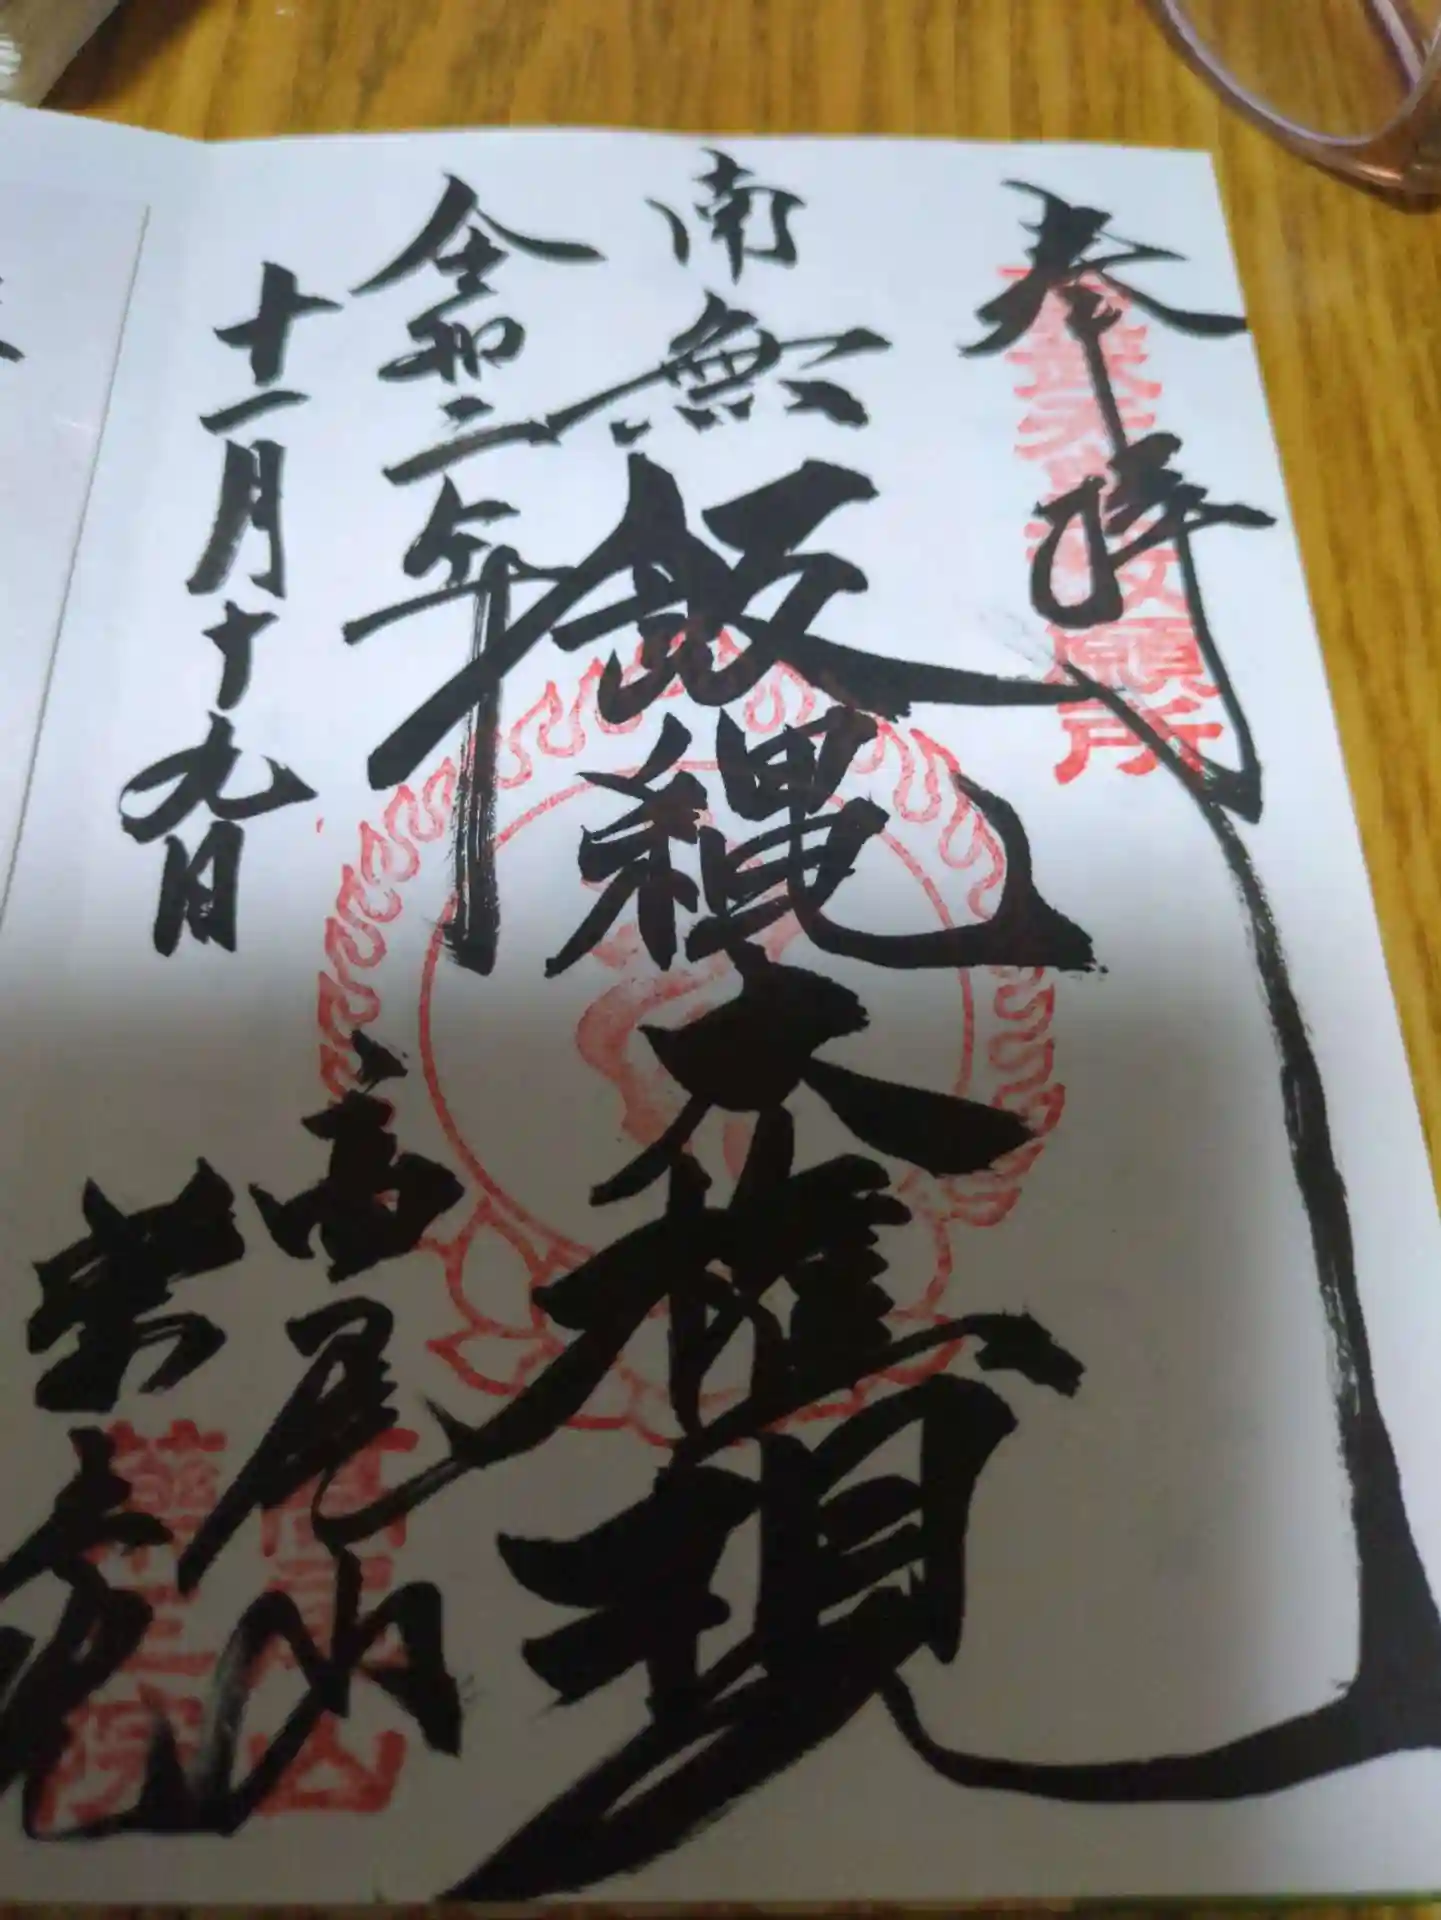 奉拝
南無飯縄大権現
令和二年
十一月十九日
高尾山
薬王院
高尾山
薬王院